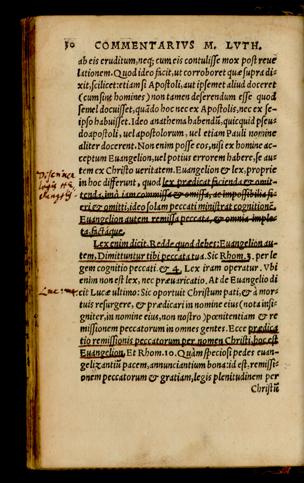 30 COMMENTARIVS M. LVTH.
ab eis eruditum, neq; cum eis contulisse mox post reue
lationem. Quod ideo facit, ut corroboret quæ supra di-
xit, scilicet: etiam si Apostoli, aut ipsemet aliud doceret
(cum sint homines) non tamen deserendum esse quod
semel docuisset, quādo hoc nec ex Apostolis, nec ex se-
ipso habuisset. Ideo anathema habendū, quicquid pseu-
doapostoli, uel apostolorum, uel etiam Pauli nomine
aliter docerent. Non enim posse eos, nisi ex homine ac-
ceptum Euangelion, uel potius errorem habere, se au-
tem ex Christo ueritatem. Euangelion & lex, proprie
in hoc differunt, quod lex prædicat facienda & omit-
tenda, imò iam commissa & omissa, ac impossibilia fi-
eri & omitti, ideo solam peccati ministrat cognitionē.
Euangelion autem remissa peccata, & omnia imple-
ta, factáque.
Lex enim dicit. Redde quod debes: Euangelion au-
tem, Dimittuntur tibi peccata tua. Sic Rhom. 3. per le
gem cognitio peccati. & 4. Lex iram operatur. Vbi
enim non est lex, nec præuaricatio. At de Euangelio di
Luc
cit Lucæ ultimo: Sic oportuit Christum pati, & à mor-
tuis resurgere, & prædicari in nomine eius (nota insi-
gniter, in nomine eius, non nostro) pœnitentiam & re
missionem peccatorum in omnes gentes. Ecce prædica
tio remissionis peccatorum per nomen Christi, hoc est
Euangelion. Et Rhom. 10. Quàm speciosi pedes euan-
gelizantiū pacem, annunciantium bona: id est, remissi-
onem peccatorum & gratiam, legis plenitudinem per
Christū